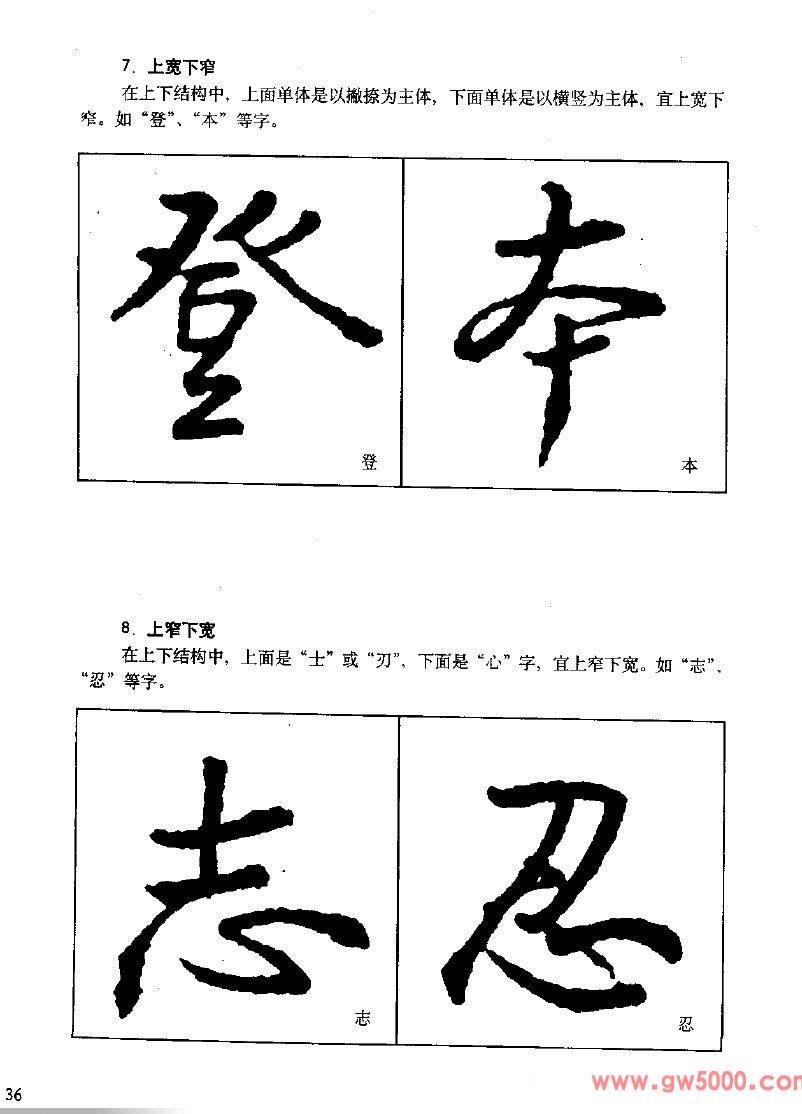 7. 上宽下窄
在上下结构中，上面单体是以撇捺为主体，下面单体是以横竖为主体，宜上宽下
窄。如“登”、“本”等字。
登 本
登 本
8. 上窄下宽
在上下结构中，上面是“士”或“刃”，下面是“心”字，宜上窄下宽。如“志”、
“忍”等字。
志 忍
志 忍
36
www.gw5000.com